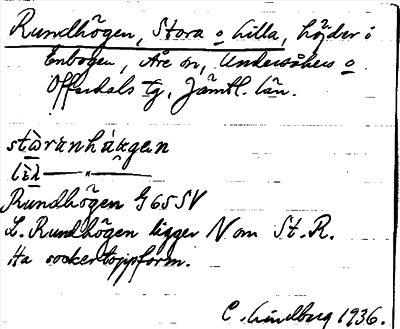 Rundhögen, Stora o Lilla, höjder i
Enbogen, Åre sn, Undersåkers o
Offerdals tg, Jämtl. län.
Rundhögen G65SV
L. Rundhögen ligger N om St. R.
Ha sockertoppform.
C. Lindberg 1936.